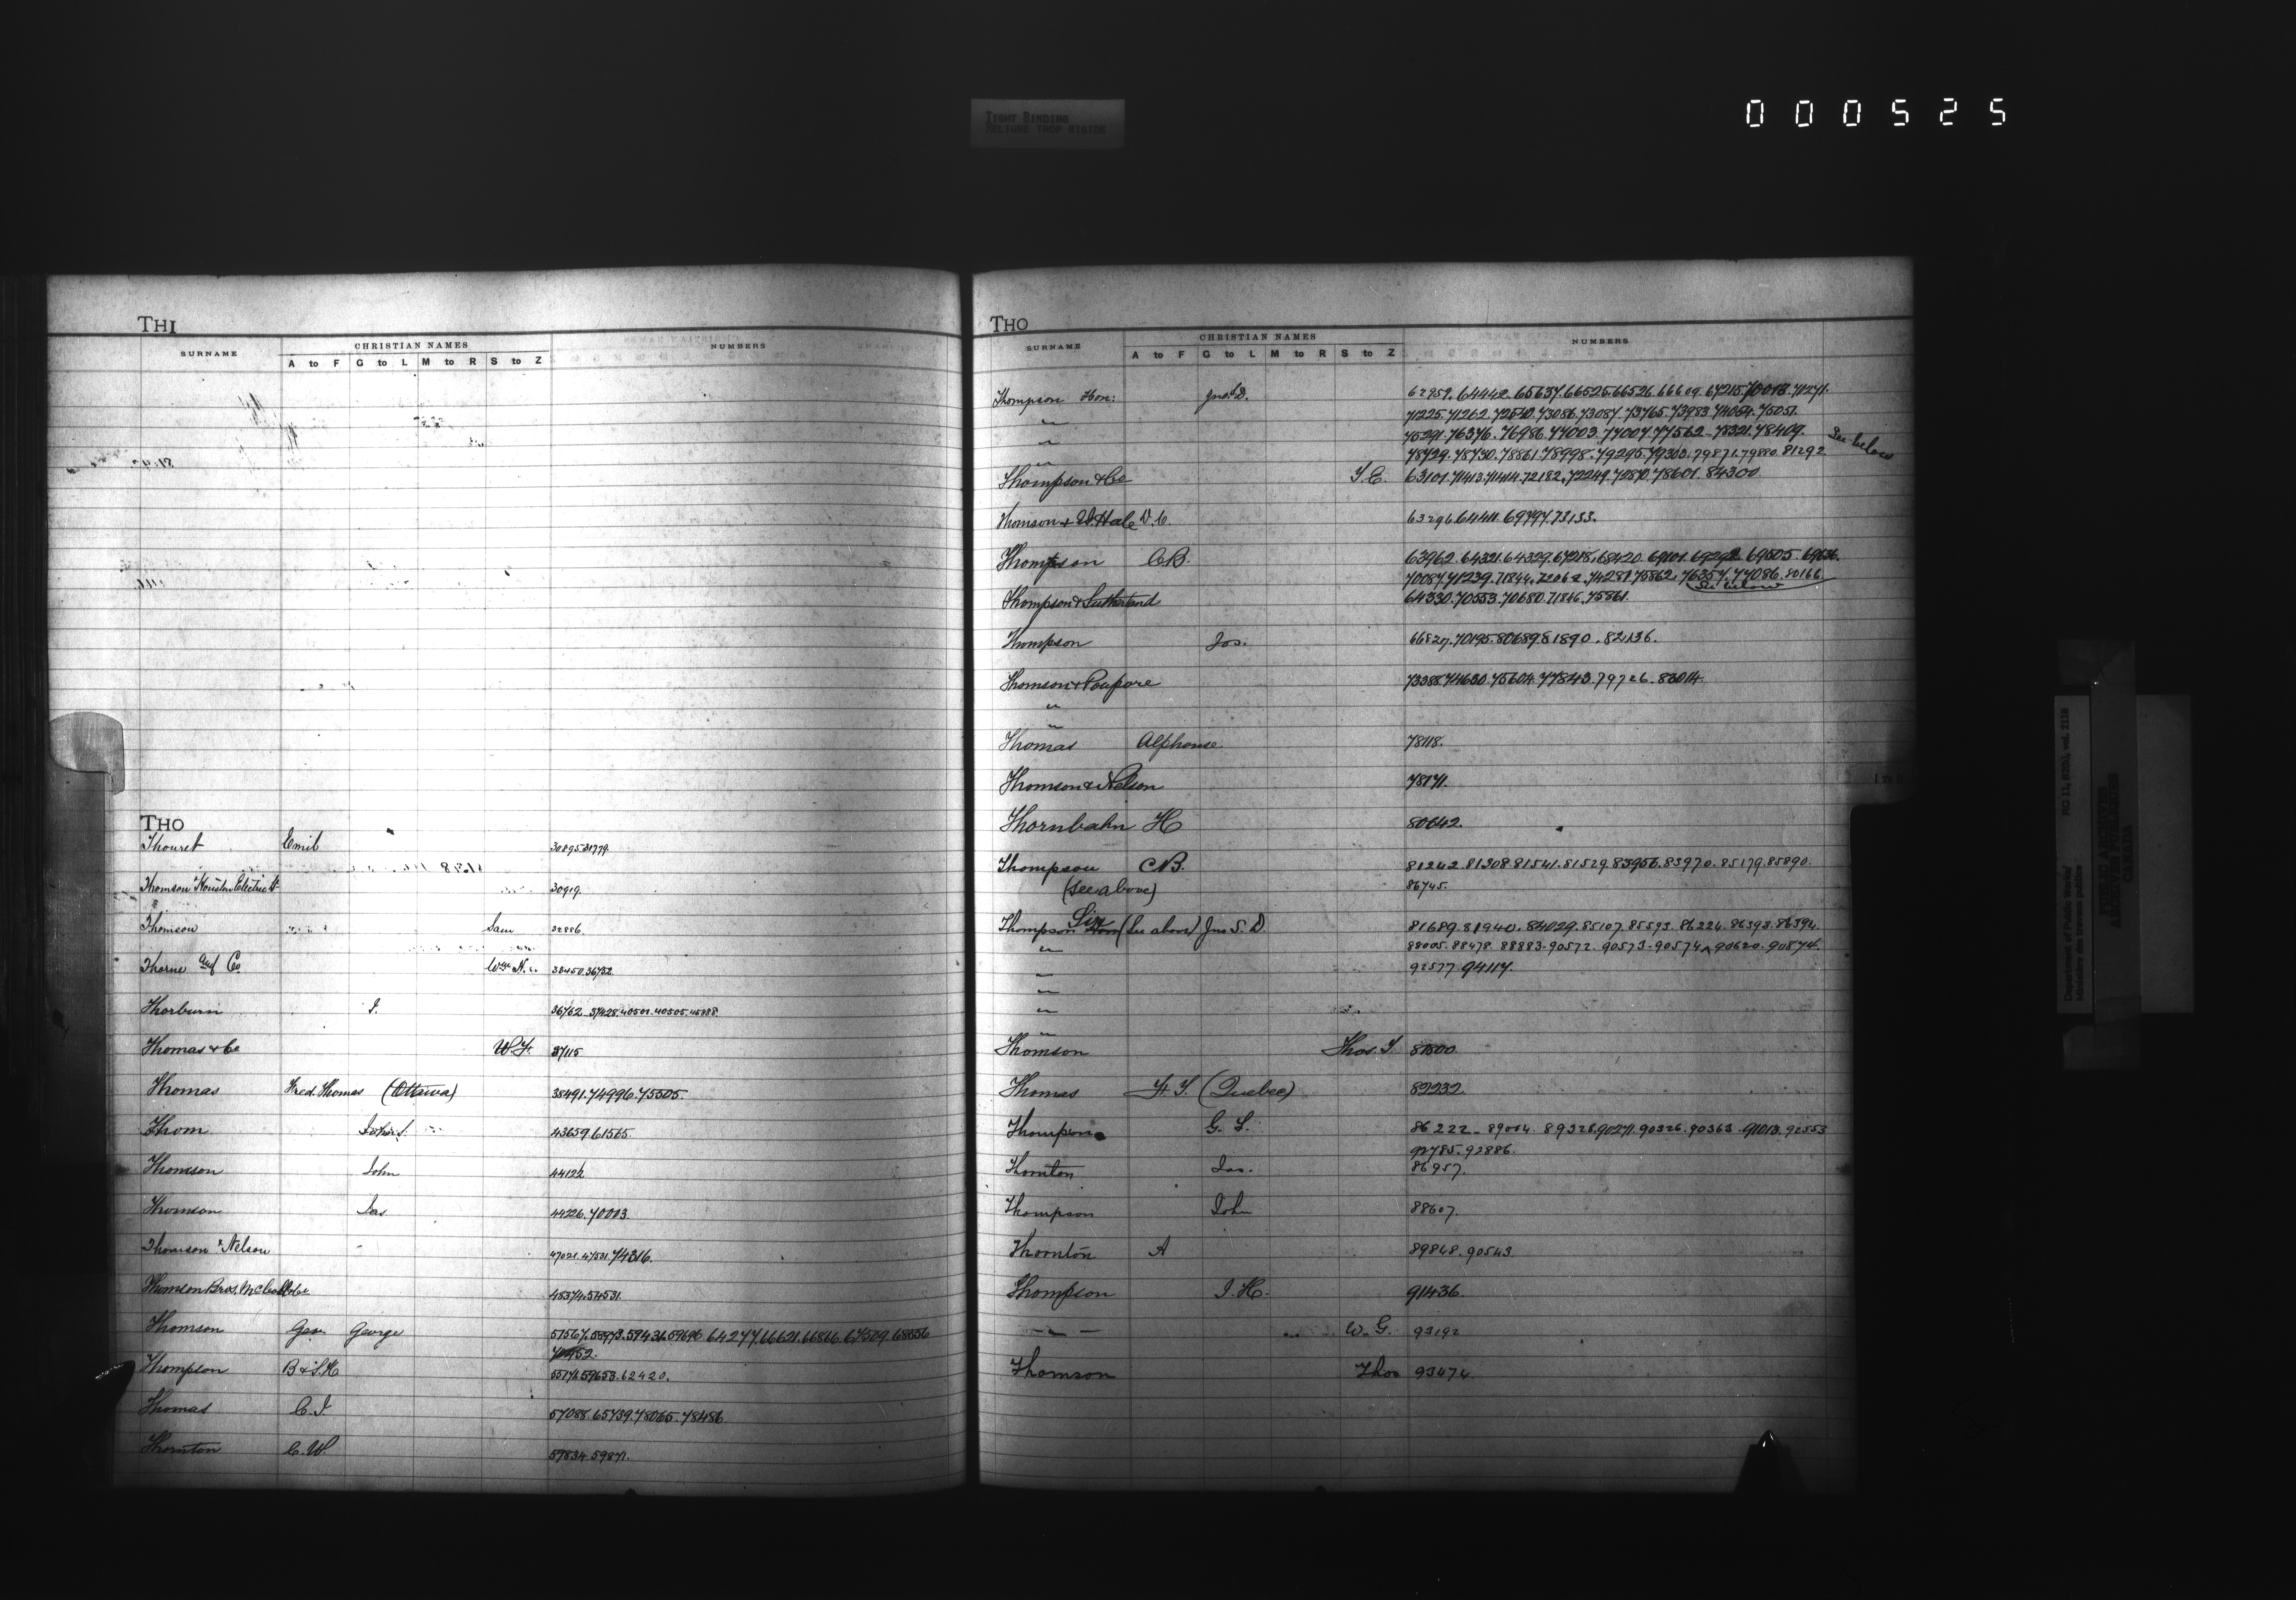 TIGHT BINDING
RELIURE TROP RIGIDE
000525
THI
SURNAME CHRISTIAN NAMES NUMBERS
A to F G to L M to R S to Z
THO
Thouret Emil 30895.31779
Thomson Houston Electric Lt 30919.
Thomson Sam 32886
Thorne and Co Wm N. 38450.36752
Thorburn J. 36762.37428.40501.40505.45888
Thomas & Co W.H. 37115
Thomas Fred. Thomas (Ottawa) 38491.74996.75505.
Thom John S. 43659.61565.
Thomson John 44122
Thomson Jas 44226.70003
Thomson & Nelson 47021.47531.74316.
Thomson Bros. 48374.54531.
Thomson Geo. George 57567.58973.59431.59696.64277.66621.66816.67509.68856
70952.
Thompson B & S.H 55176.59653.62420.
Thomas C.J. 57088.65739.78065.78486
Thornton C.W. 59834.59871.
THO
SURNAME CHRISTIAN NAMES NUMBERS
A to F G to L M to R S to Z
Thompson Hon: Jno. S.D. 62959.64442.65637.66525.66526.66609.67215.70018.71271.
" 71225.71262.72540.73086.73087.73765.73983.74054.75051.
" 75291.76376.76986.77003.77007.77562.78321.78409. See below
" 78729.78730.78861.78998.79295.79303.79871.79880.81292
Thompson & Co T.E. 63101.71413.71414.72182.72249.72870.78601.84300
Thomson & W. Hale D.C. 63296.64411.69797.73133.
Thompson C.B. 63962.64321.64329.67218.68420.69101.69292.69505.69636.
70087.71239.71844.72062.74281.75862.76357.77086.80166
See below
Thompson & Sutherland 64330.70553.70680.71846.75861.
Thompson Jos. 66827.70195.80689.81890.82136.
Thomson & Poupore 73388.74630.75604.77843.79726.83014.
"
"
Thomas Alphonse 78118.
Thomson & Nelson 78171.
Thornbahn H 80642.
Thompson C.B. 81242.81308.81541.81529.83956.83970.85179.85890.
(see above) 86745.
Thompson Sir (See above) Jno S. D. 81689.81940.84029.85107.85593.86224.86393.86394.
" 88005.88478.88883.90572.90573.90574.90620.90874.
" 92577.94117.
"
"
"
Thomson Thos. T. 81500.
Thomas H.T. (Quebec) 82232
Thompson G. L. 86222.89004.89328.90271.90326.90363.91013.92553
92785.92886.
Thornton Jas. 86957.
Thompson John 88607.
Thornton A 89848.90543
Thompson J.H. 91436.
" W.G. 93192
Thomson Thos 93474.
Department of Public Works/
Ministère des travaux publics
RG 11, B2(b), vol. 2118
PUBLIC ARCHIVES
ARCHIVES PUBLIQUES
CANADA